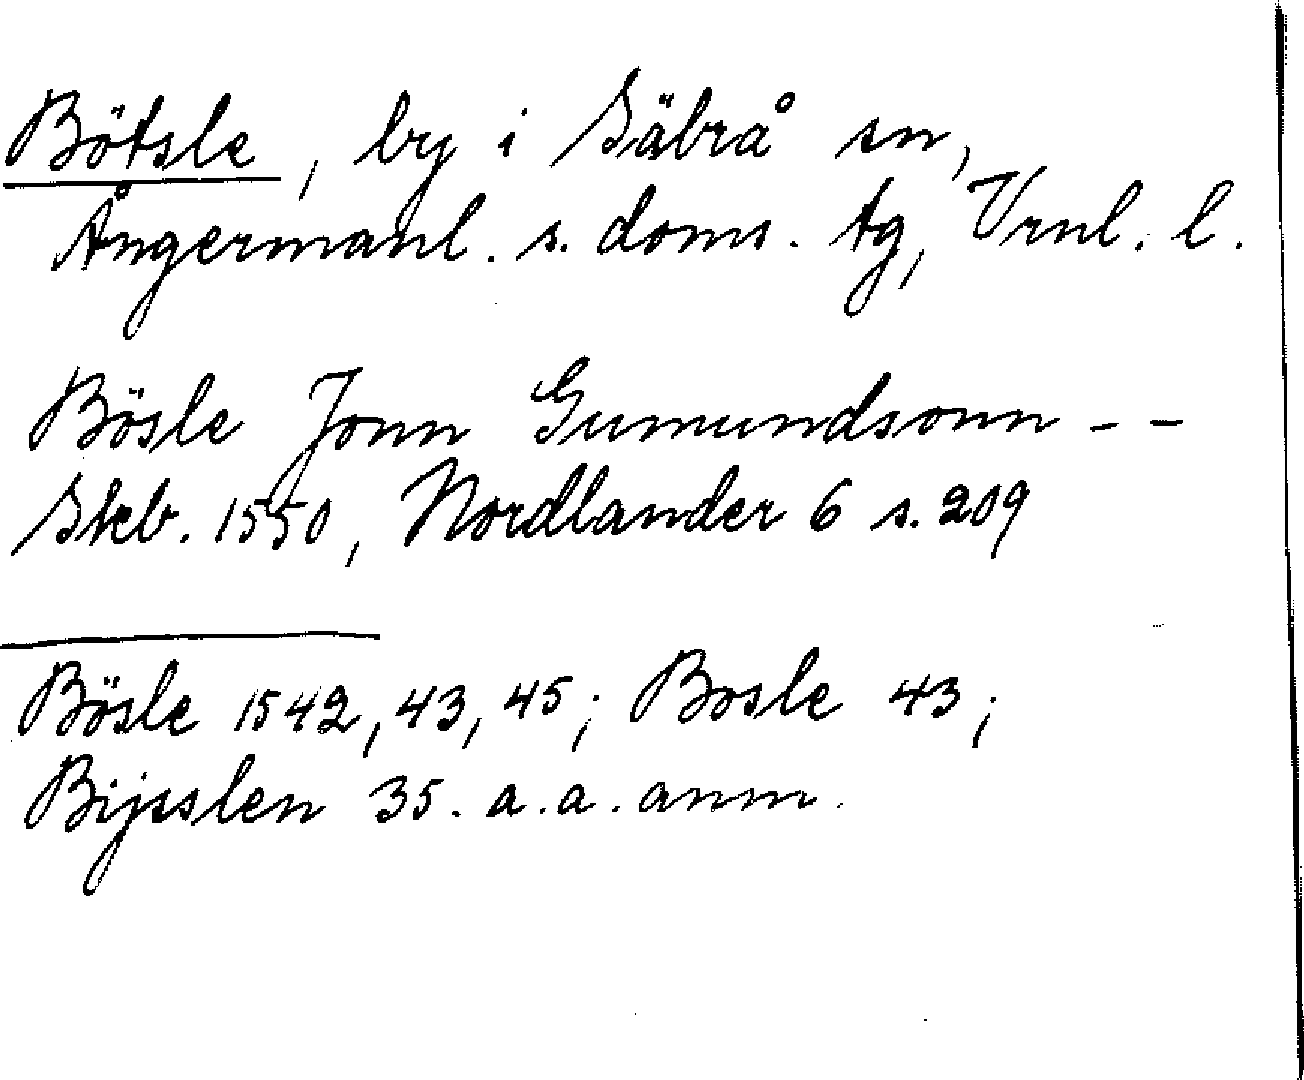 Bötsle, by i Säbrå sn,
Ångermanl. s. doms. tg, Vrnl. l.
Bösle Jonn Gumundsonn - -
Skb. 1550, Nordlander 6 s. 209
Bösle 1542, 43, 45; Bosle 43;
Bijsslen 35. a. a. anm.